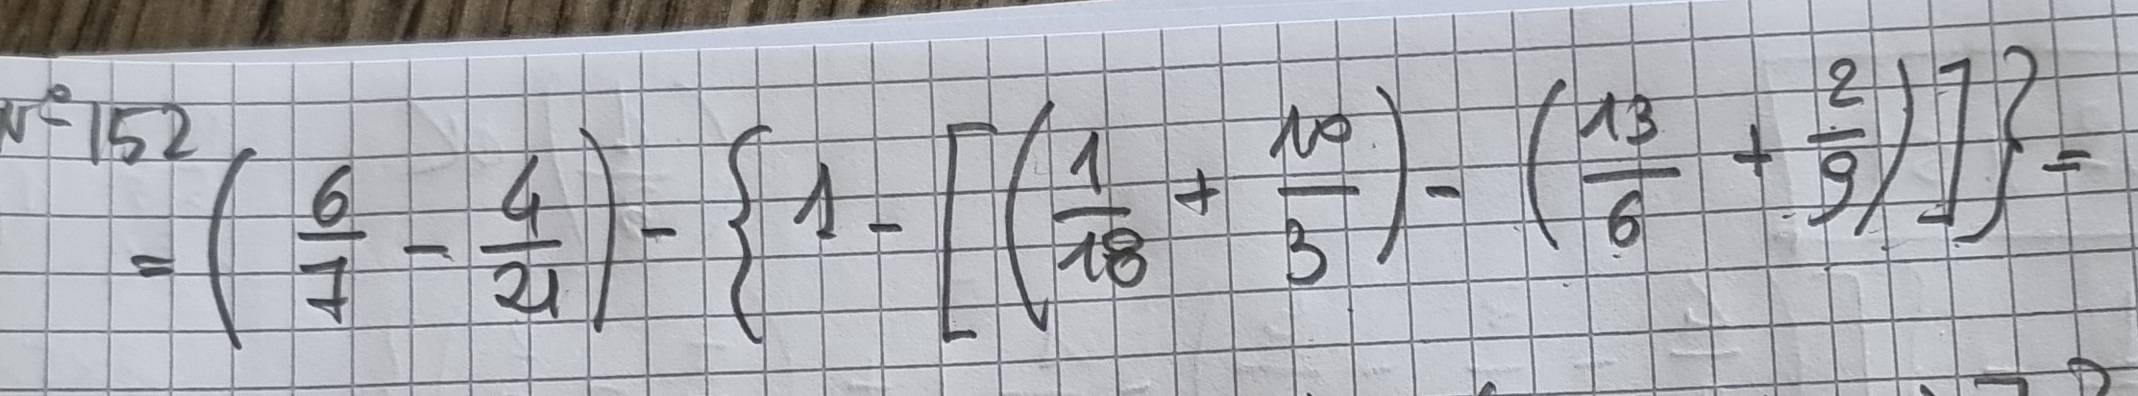 Nº 152
= (6/7 - 4/21) - {1 - [(1/18 + 10/3) - (13/6 + 2/9)]} =